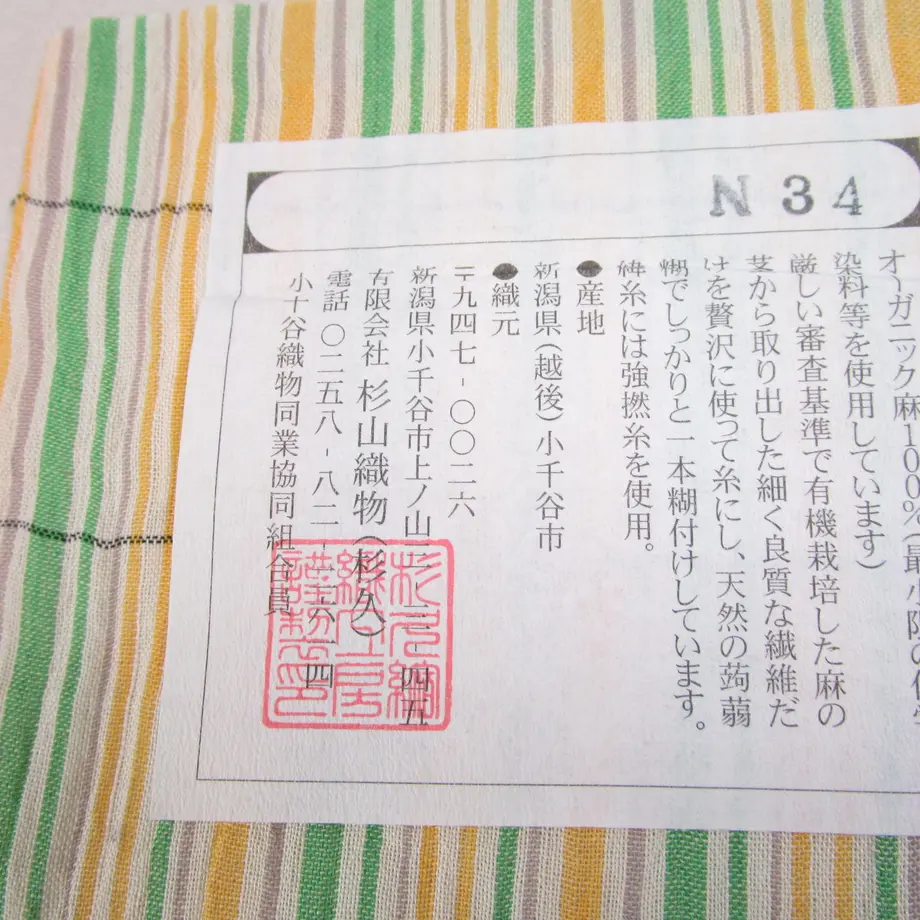 N34
オーガニック麻100%(最小限の
染料等を使用しています)
厳しい審査基準で有機栽培した麻の
茎から取り出した細く良質な繊維だ
けを贅沢に使って糸にし、天然の蒟蒻
糊でしっかりと一本糊付けしています。
緯糸には強撚糸を使用。
●産地
新潟県(越後)小千谷市
●織元
〒九四七-〇〇二六
新潟県小千谷市上ノ山
有限会社 杉山織物(杉久)
電話 〇二五八-八二-
小千谷織物同業協同組合員